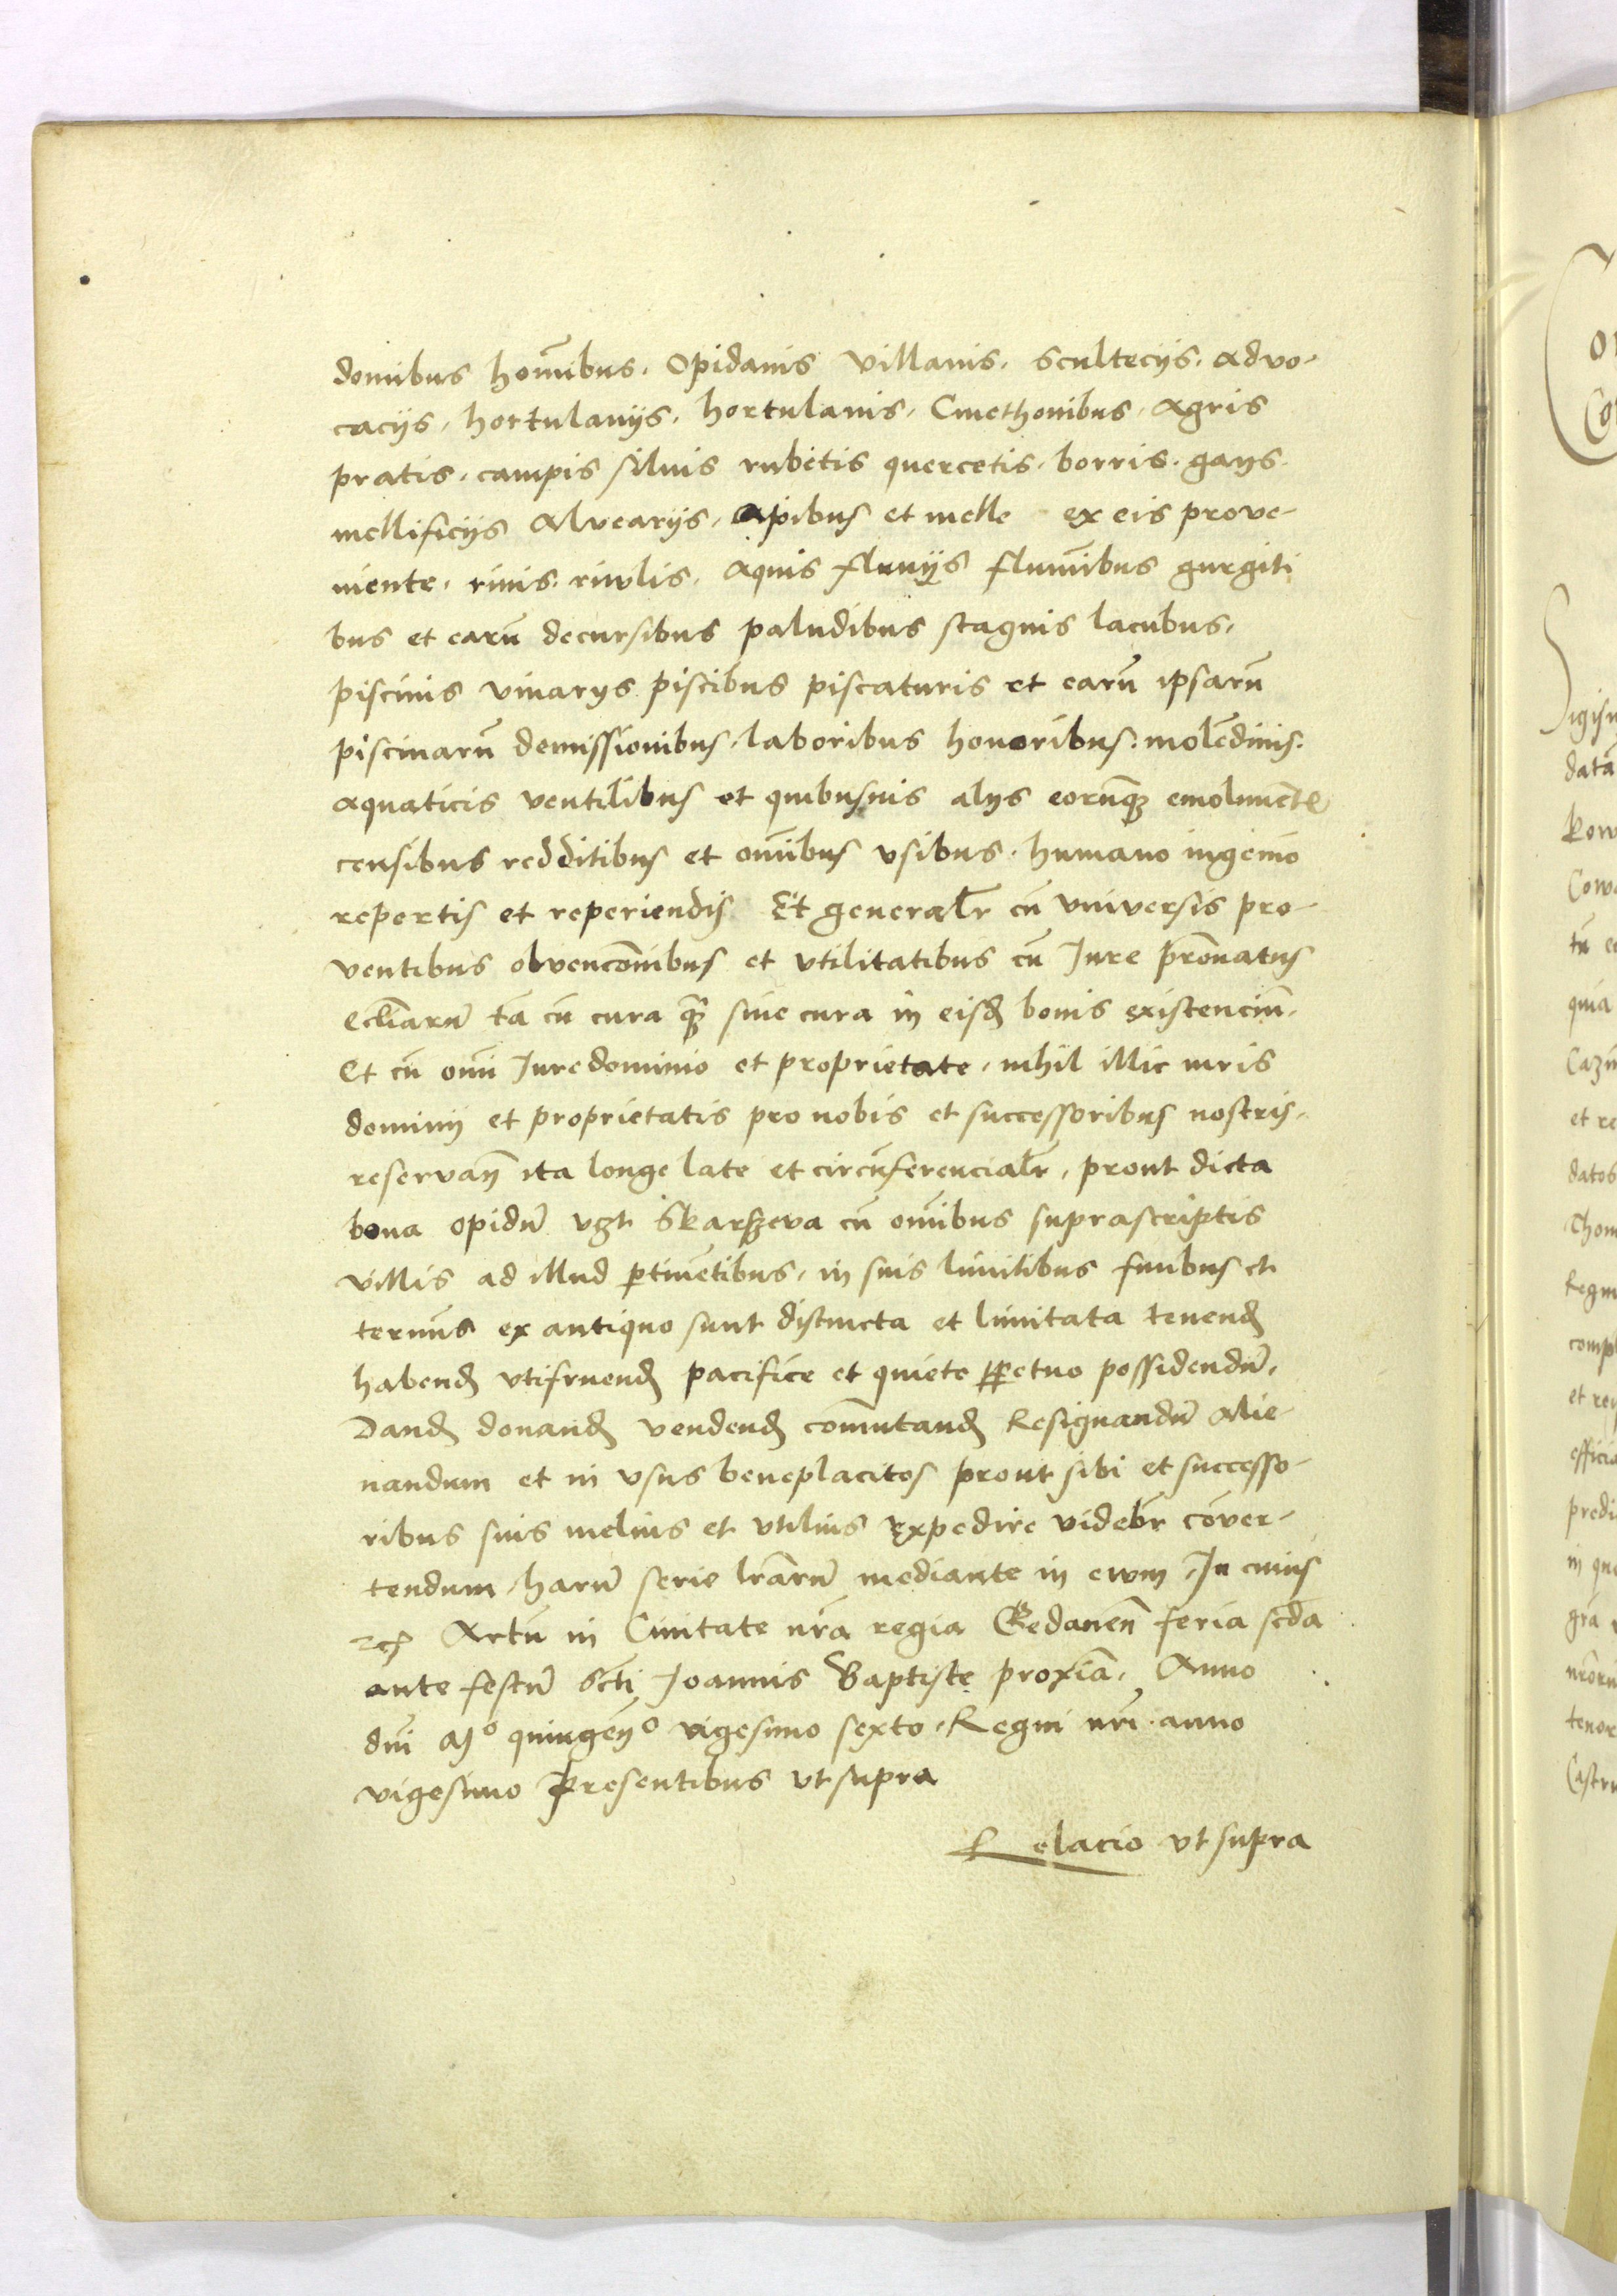 domibus homībus. Opidanis villanis. scultecijs. advo-
cacijs, hortulanijs. hortulanis, Cmethonibus, Agris
pratis. campis siluis rubetis quercetis. borris. gays
mellificijs Alvearijs, Apibus et melle ex eis prove-
niente. riuis. riwlis. Aquis fluuijs flumībus gurgiti
bus et earū decursibus paludibus stagnis lacubus.
piscinis vivarys piscibus piscaturis et earū ipsarū
piscinarū demissionibus, laboribus honoribus: molēdinis.
aquaticis ventilibus et quibusuis alys eorūqꝫ emolumēt
censibus redditibus et om̄ibus vsibus. humano ingenio
repertis et reperiendis Et generalr cū vniversis pro-
ventibus obvencōnibus et vtilitatibus cū Jure pr̄onatus
eccliarū tā cū cura qꝫ sine cura in eisd bonis existenciū.
Et cū om̄i Jure dominio et proprietate, nihil illic iuris
dominij et proprietatis pro nobis et successoribus nostris.
reservan̄ ita longe late et circūferencialr, prout dicta
bona opidū vꝫt Skarszeva cū om̄ibus suprascriptis
villis ad illud ꝑtinētibus, in suis limitibus finibus et
termīs ex antiquo sunt distincta et limitata tenend
habend vtifruend pacifice et quiete ꝑpetuo possidendū,
Dand donand vendend comutand Resignandū Alie-
nandum et in vsus beneplacitos prout sibi et successo-
ribus suis melius et vtilius expedire videbr cōver-
tendum, harū serie lrārū mediante in ewm, In cuius
rei Actū in Civitate nrā regia Gedanen̄ feria scdā
ante festū scti Joannis Baptiste proxīa, Anno
dni Mº quingenº vigesimo sexto, Regni nri. anno
vigesimo Presentibus vt supra
Relacio vt supra